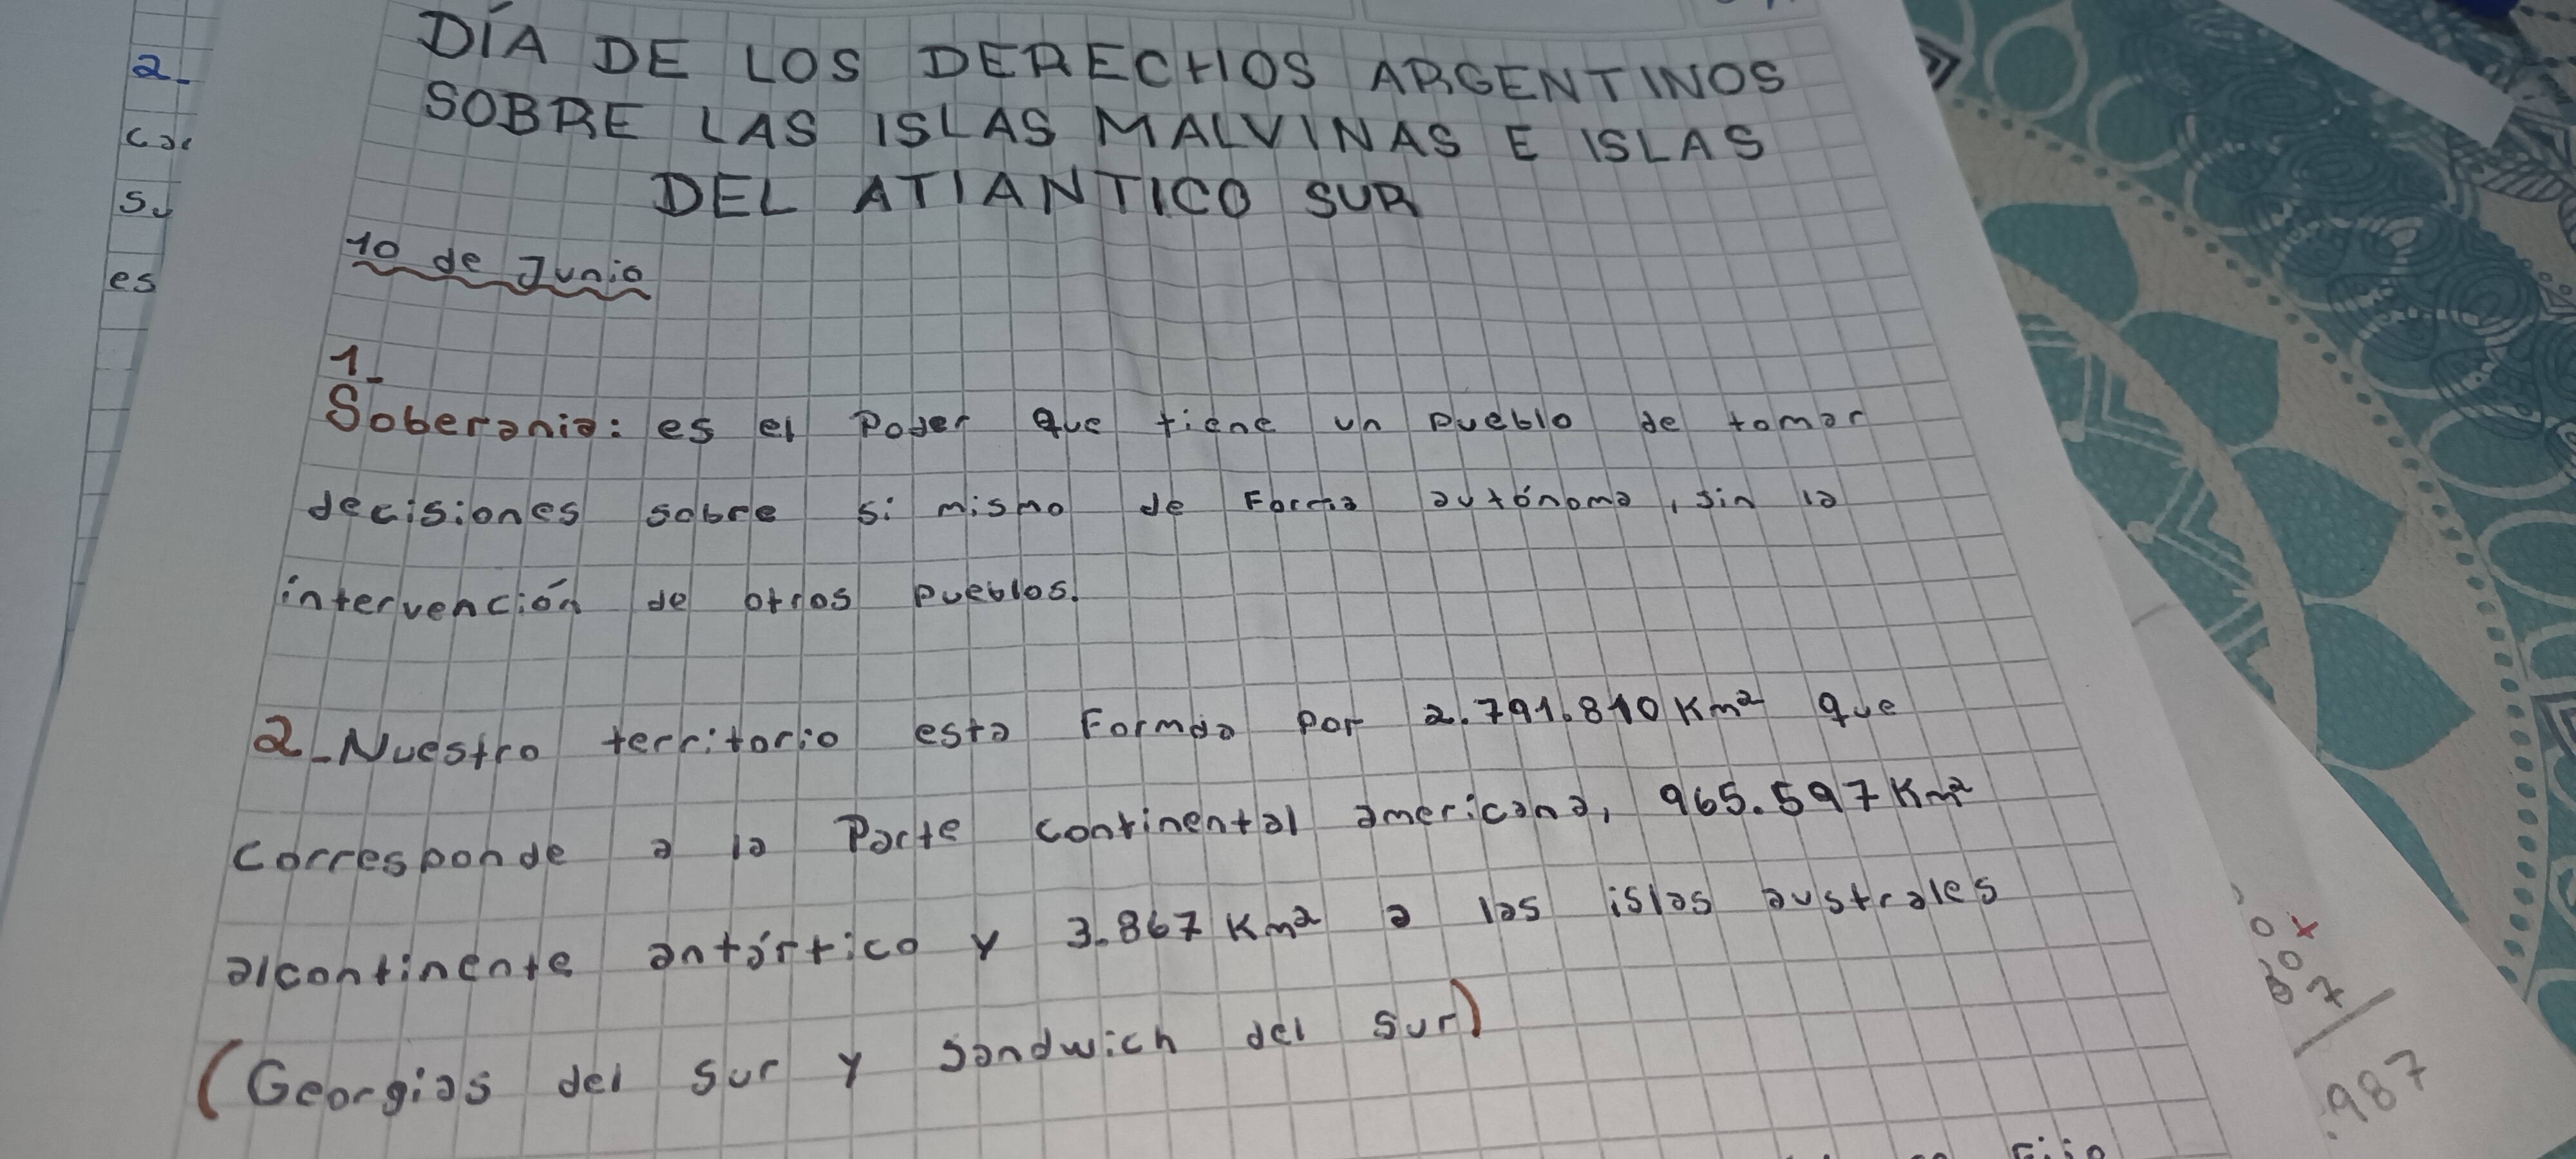 DÍA DE LOS DERECHOS ARGENTINOS
SOBRE LAS ISLAS MALVINAS E ISLAS
DEL ATIANTICO SUR
10 de Junio
1_
Soberania: es el Poder que tiene un pueblo de tomar
decisiones sobre si mismo de Forma autónoma, sin la
intervención de otros pueblos.
2_Nuestro territorio esta Formda por 2.791.810 Km² que
corresponde a la Parte continental americana, 965.597 Km²
alcontinente antártico y 3.867 Km² a las islas australes
(Georgias del sur y sandwich del sur)
2_
es
987